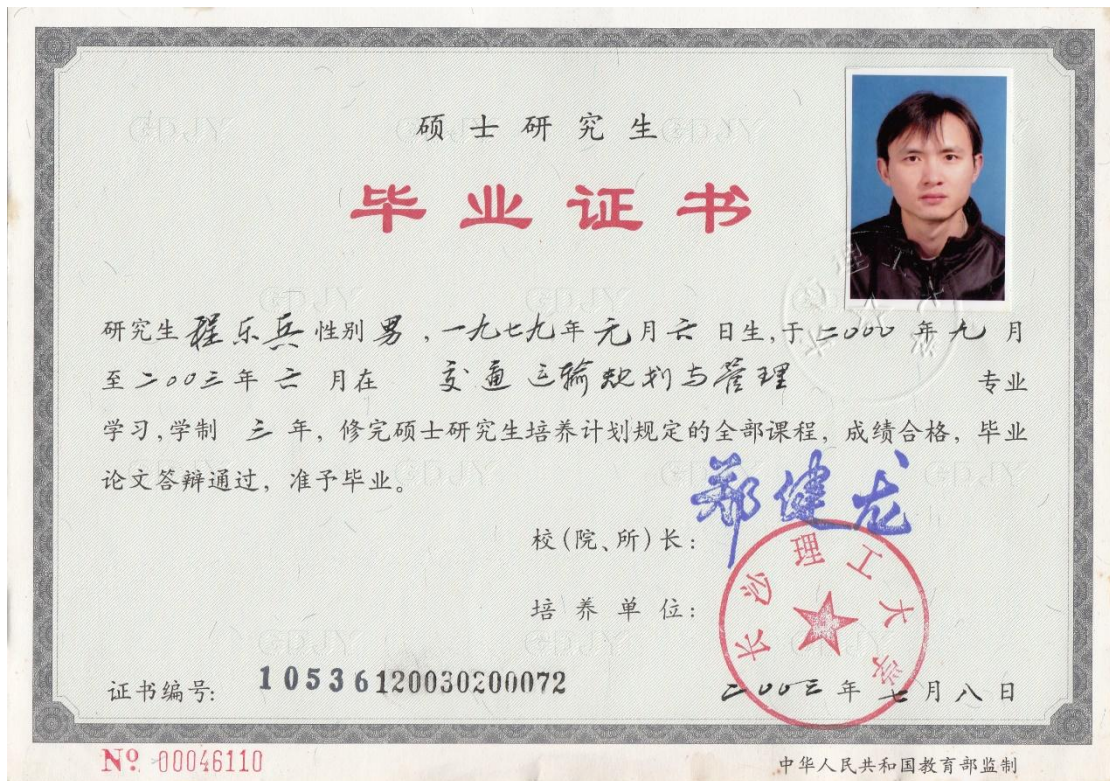 硕士研究生
毕业证书
研究生程乐兵性别男，一九七九年元月六日生，于二000年九月
至二00三年六月在 交通运输规划与管理 专业
学习，学制 三 年，修完硕士研究生培养计划规定的全部课程，成绩合格，毕业
论文答辩通过，准予毕业。
郑健龙
校(院、所)长：
培养单位：
长沙理工大学
证书编号： 10536120030200072
二00三年七月八日
No 00046110
中华人民共和国教育部监制
GDJY